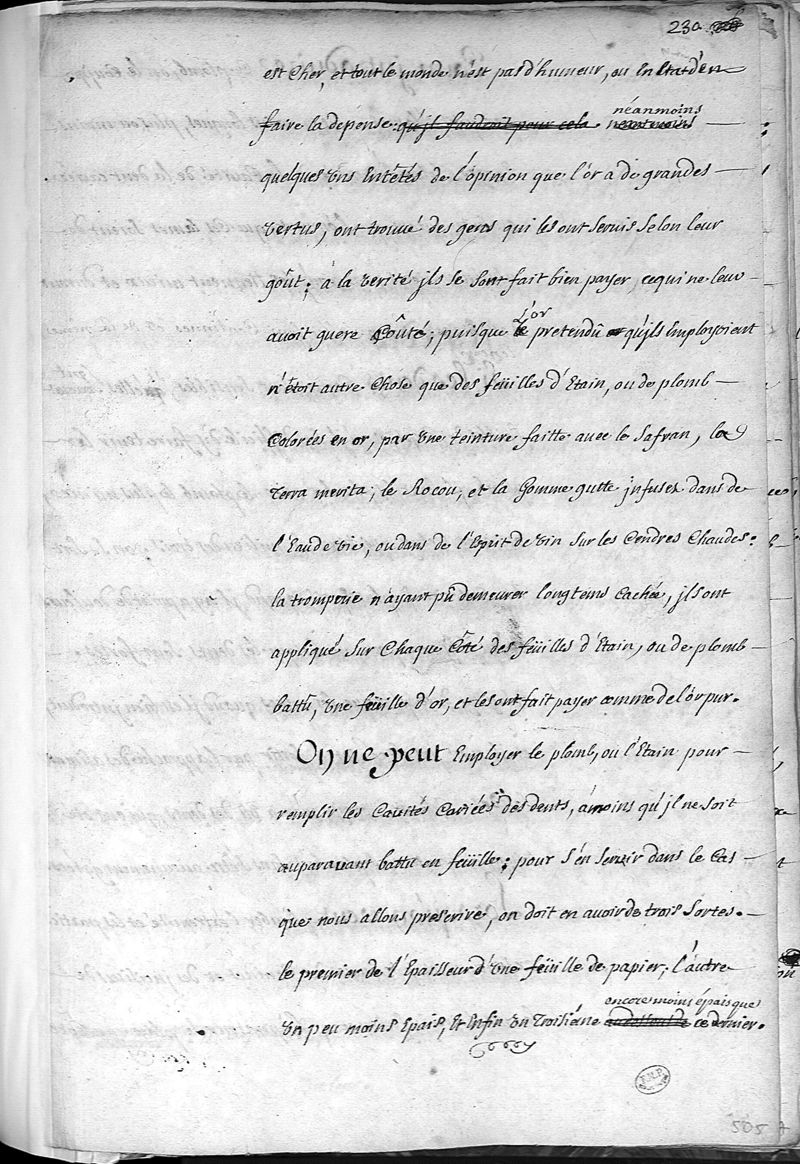 230
est Cher, et tout le monde n'est pas d'humeur, ou En Etat d'en
faire la depense. qu'jl faudroit pour cela néanmoins
quelques Uns Entêtés de l'opinion que l'or a de grandes
vertus, ont trouvé des gens qui les ont servis selon leur
goût; à la verité jls se sont fait bien payer, ce qui ne leur
avoit guere Coûté; puisque l'or pretendû qu'jls Employoient
n'étoit autre Chose que des feüilles d'Etain, ou de plomb
Colorées en or, par Une teinture faitte avec le Safran, la
Terra merita, le Rocou, et la Gomme gutte jnfusez dans de
l'Eau de vie, ou dans de l'Esprit de vin sur les Cendres Chaudes:
la tromperie n'ayant pû demeurer longtems Cachée, jls ont
appliqué sur Chaque Côté des feüilles d'Etain, ou de plomb
battû, Une feüille d'or, et les ont fait payer comme de l'or pur.
On ne peut Employer le plomb, ou l'Etain pour
remplir les Cavités Cariées des dents, à moins qu'jl ne soit
auparavant battu en feüille; pour s'en servir dans le Cas
que nous allons prescrire, on doit en avoir de trois sortes.
le premier de l'Epaisseur d'Une feüille de papier, l'autre
Un peu moins Epais, Et Enfin Un Troisiéme encore moins épais que ce dernier.
505